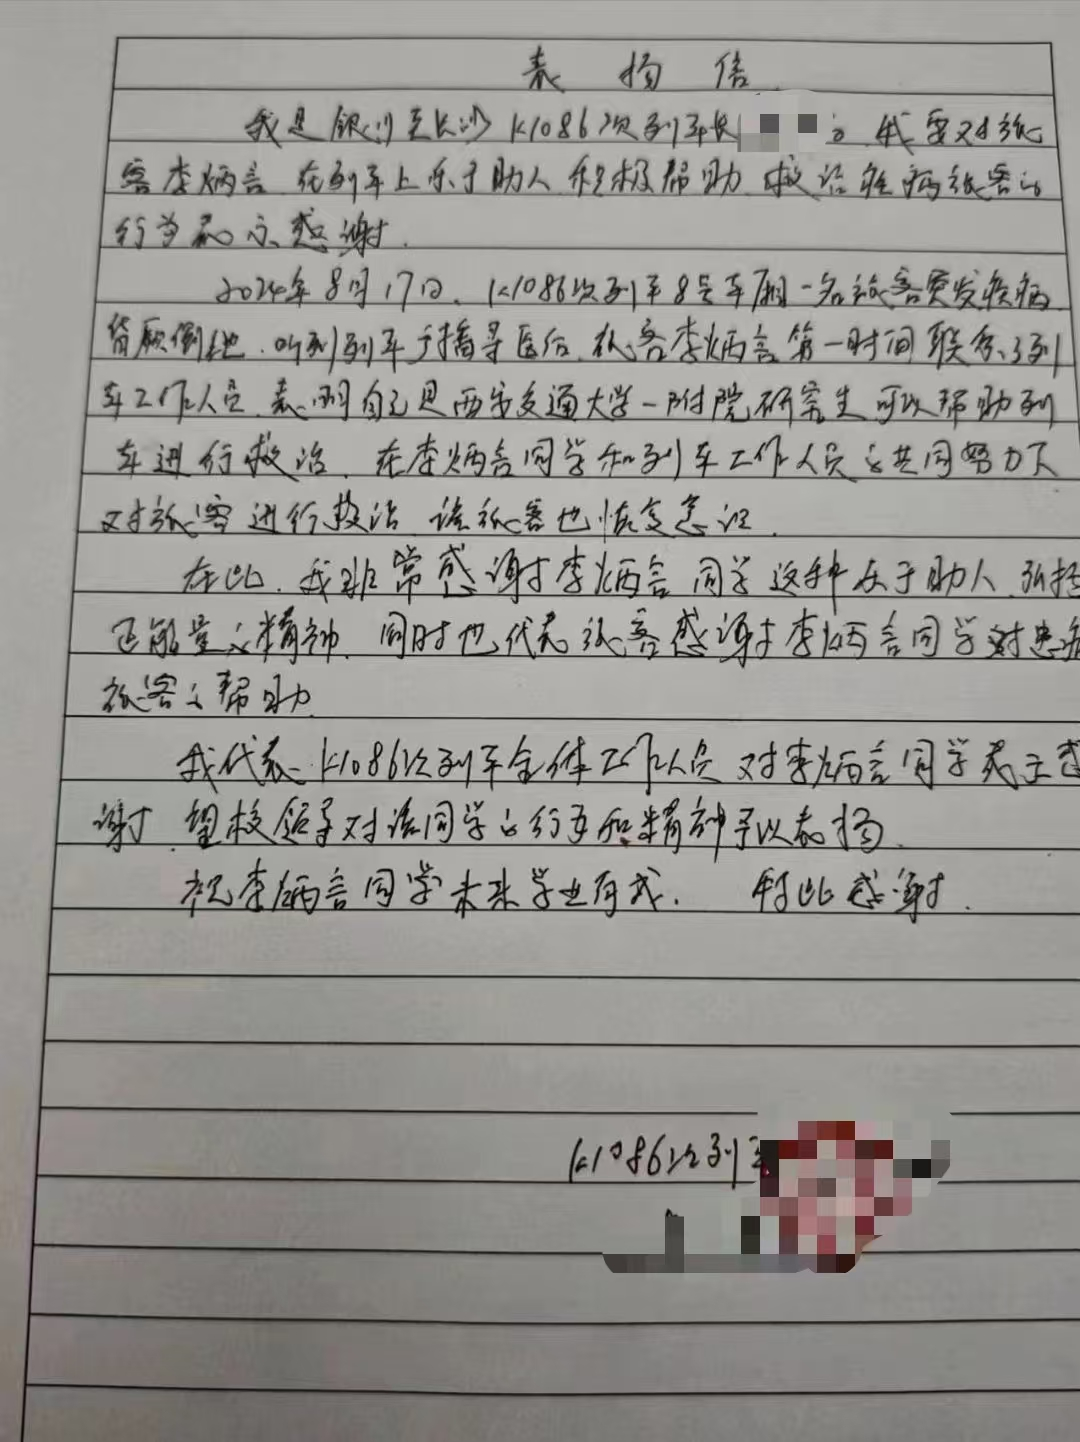 表扬信
我是银川至长沙K1086次列车长 我要对旅
客李炳言在列车上乐于助人积极帮助、救治生病旅客的
行为表示感谢.
2024年8月17日、K1086次列车8号车厢一名旅客突发疾病
昏厥倒地.听到列车广播寻医后、旅客李炳言第一时间联系了列
车工作人员、表明自己是西安交通大学一附院研究生可以帮助列
车进行救治、在李炳言同学和列车工作人员的共同努力下
对旅客进行救治、该旅客也恢复意识.
在此、我非常感谢李炳言同学这种乐于助人、弘扬
正能量的精神、同时也代表旅客感谢李炳言同学对患病
旅客的帮助
我代表K1086次列车全体工作人员对李炳言同学表示感
谢、望校领导对该同学的行为和精神予以表扬.
祝李炳言同学未来学业有成. 特此感谢.
K1086次列